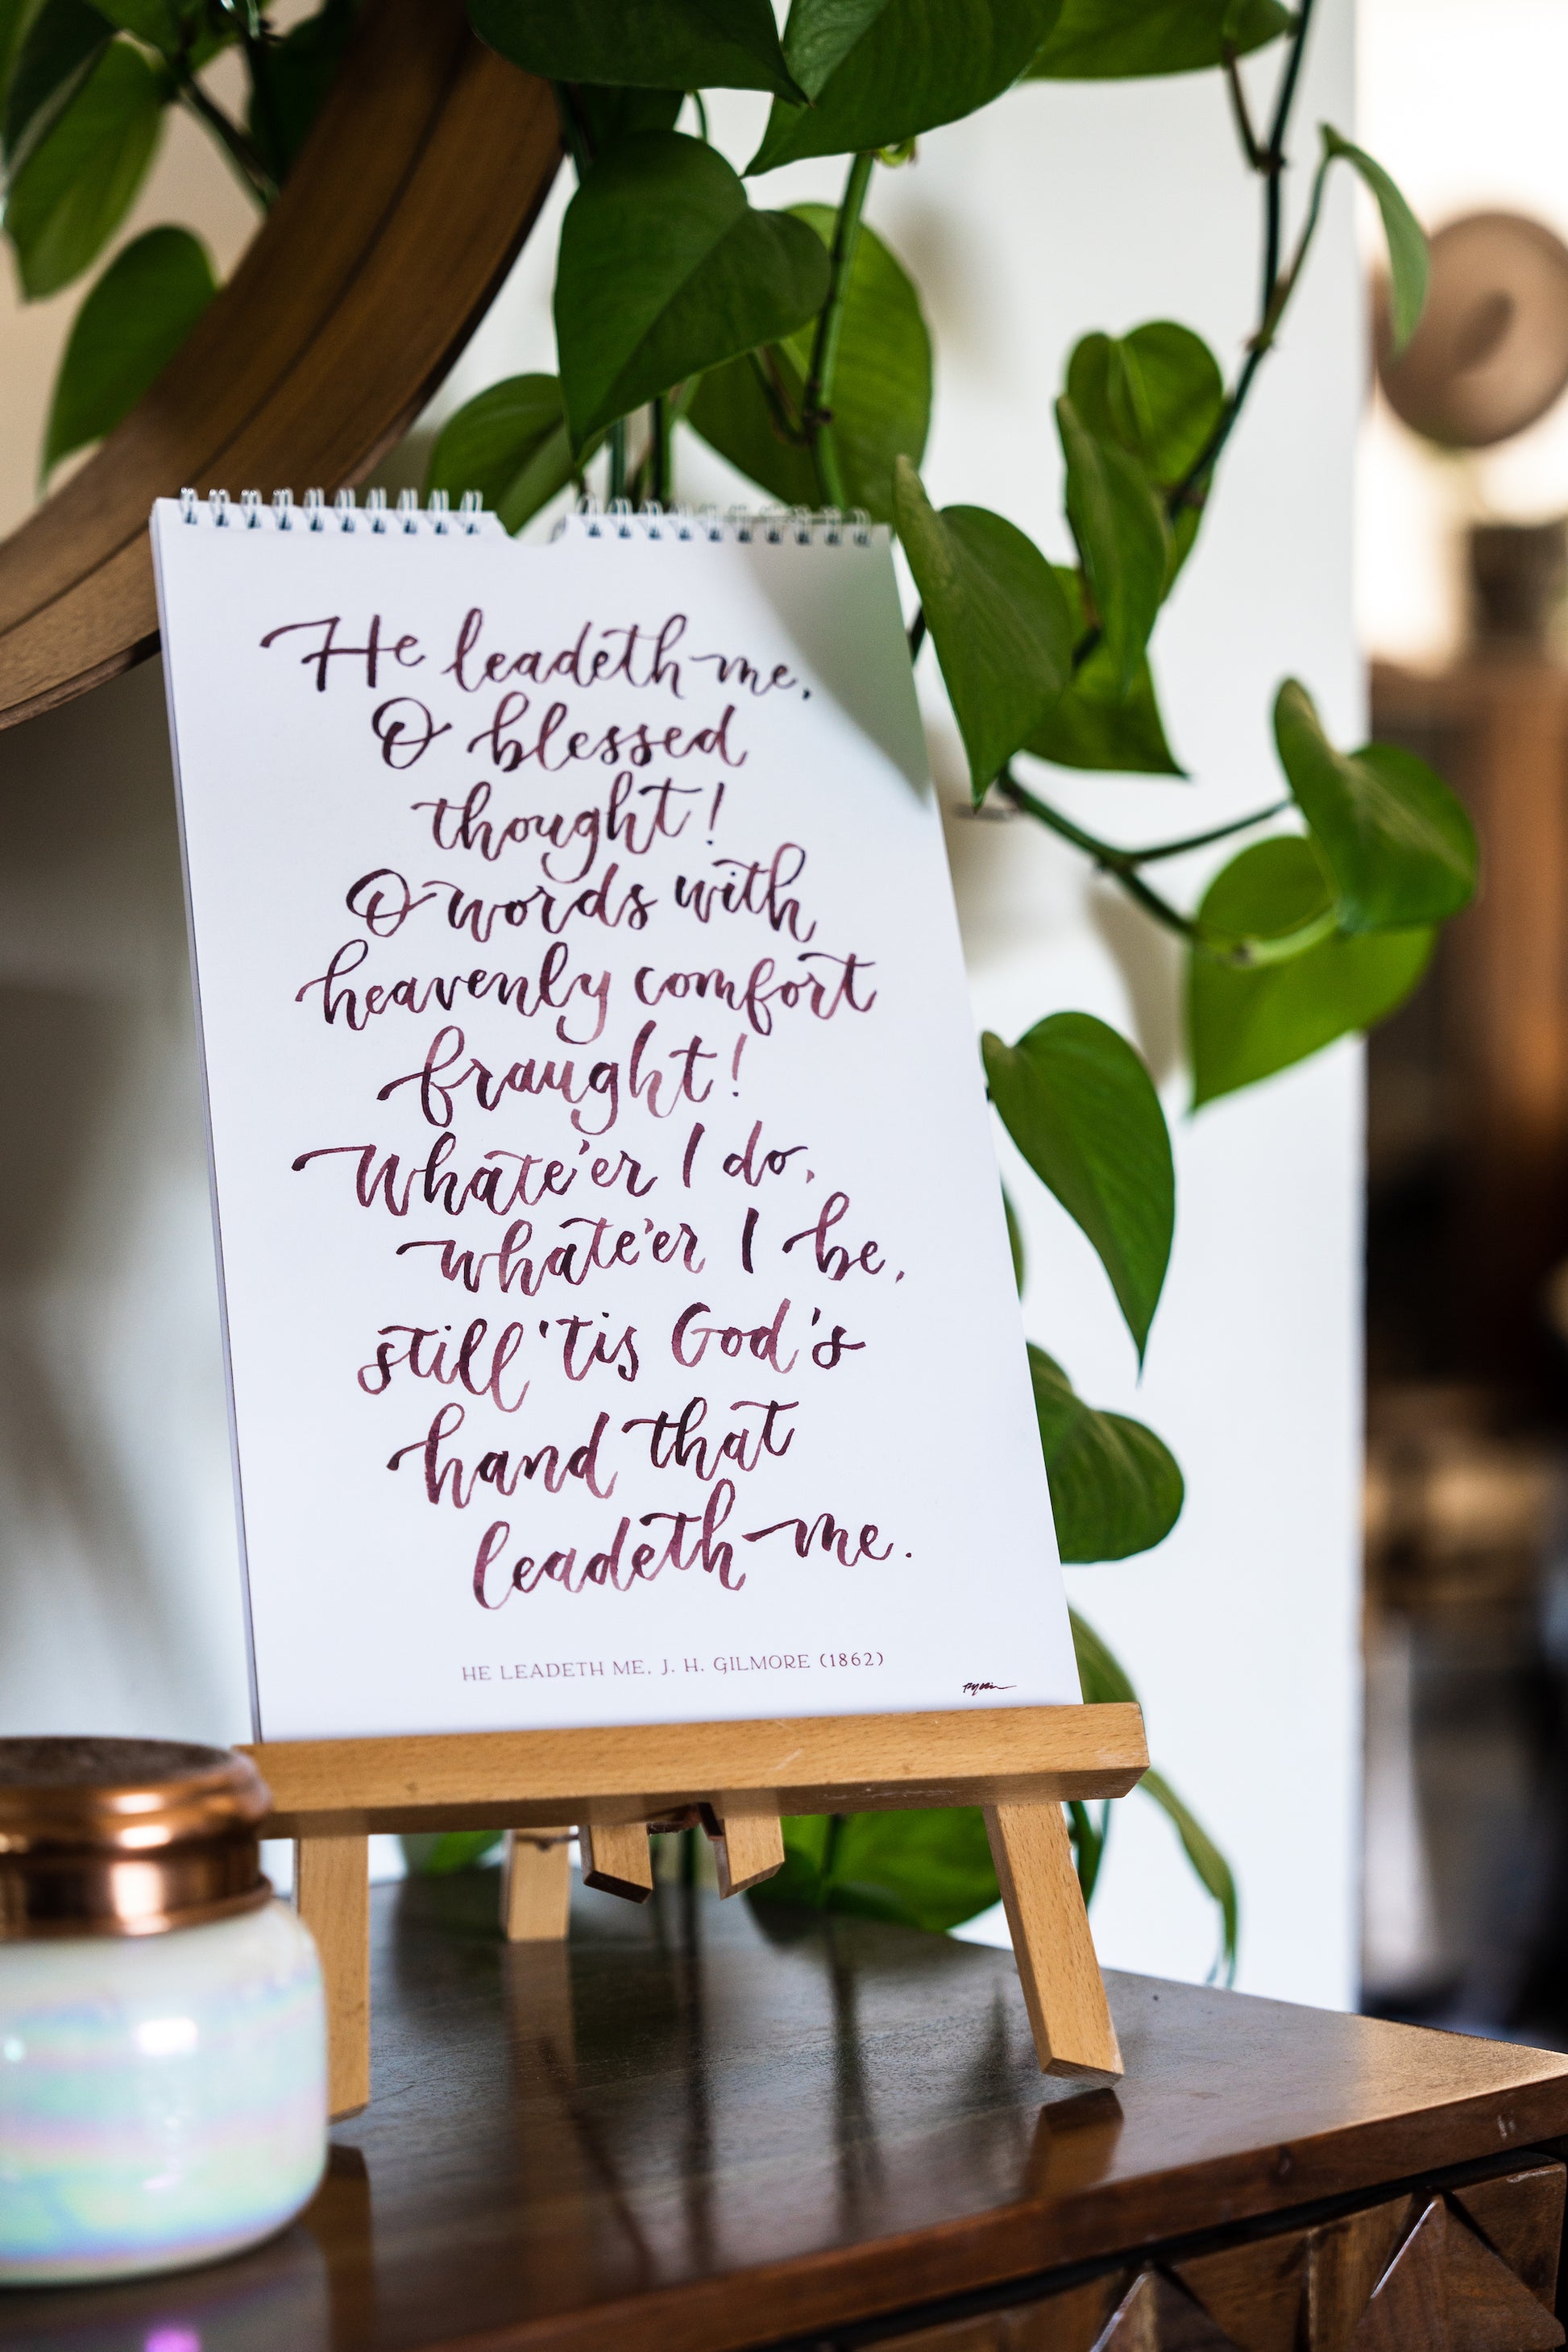 He leadeth me,
O blessed
thought!
O words with
heavenly comfort
fraught!
Whate'er I do,
whate'er I be,
still 'tis God's
hand that
leadeth me.
HE LEADETH ME, J. H. GILMORE (1862)